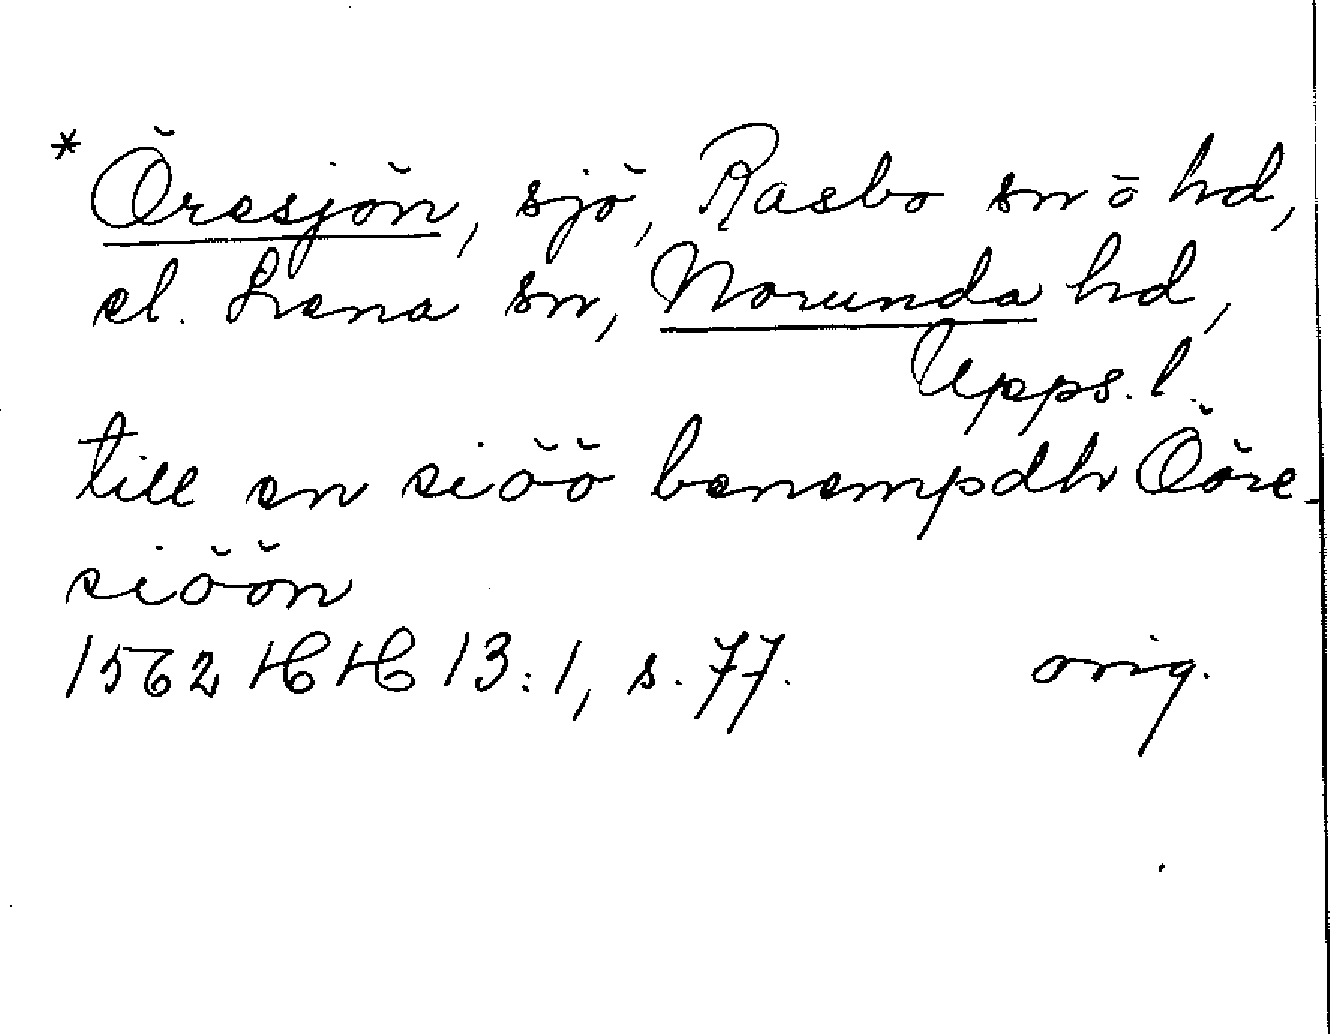 * Öresjön, sjö, Rasbo sn o hd,
el. Lena sn, Norunda hd,
Upps. l.
till en siöö benempdh Ööre-
siöön
1562 HH 13:1, s. 77. orig.